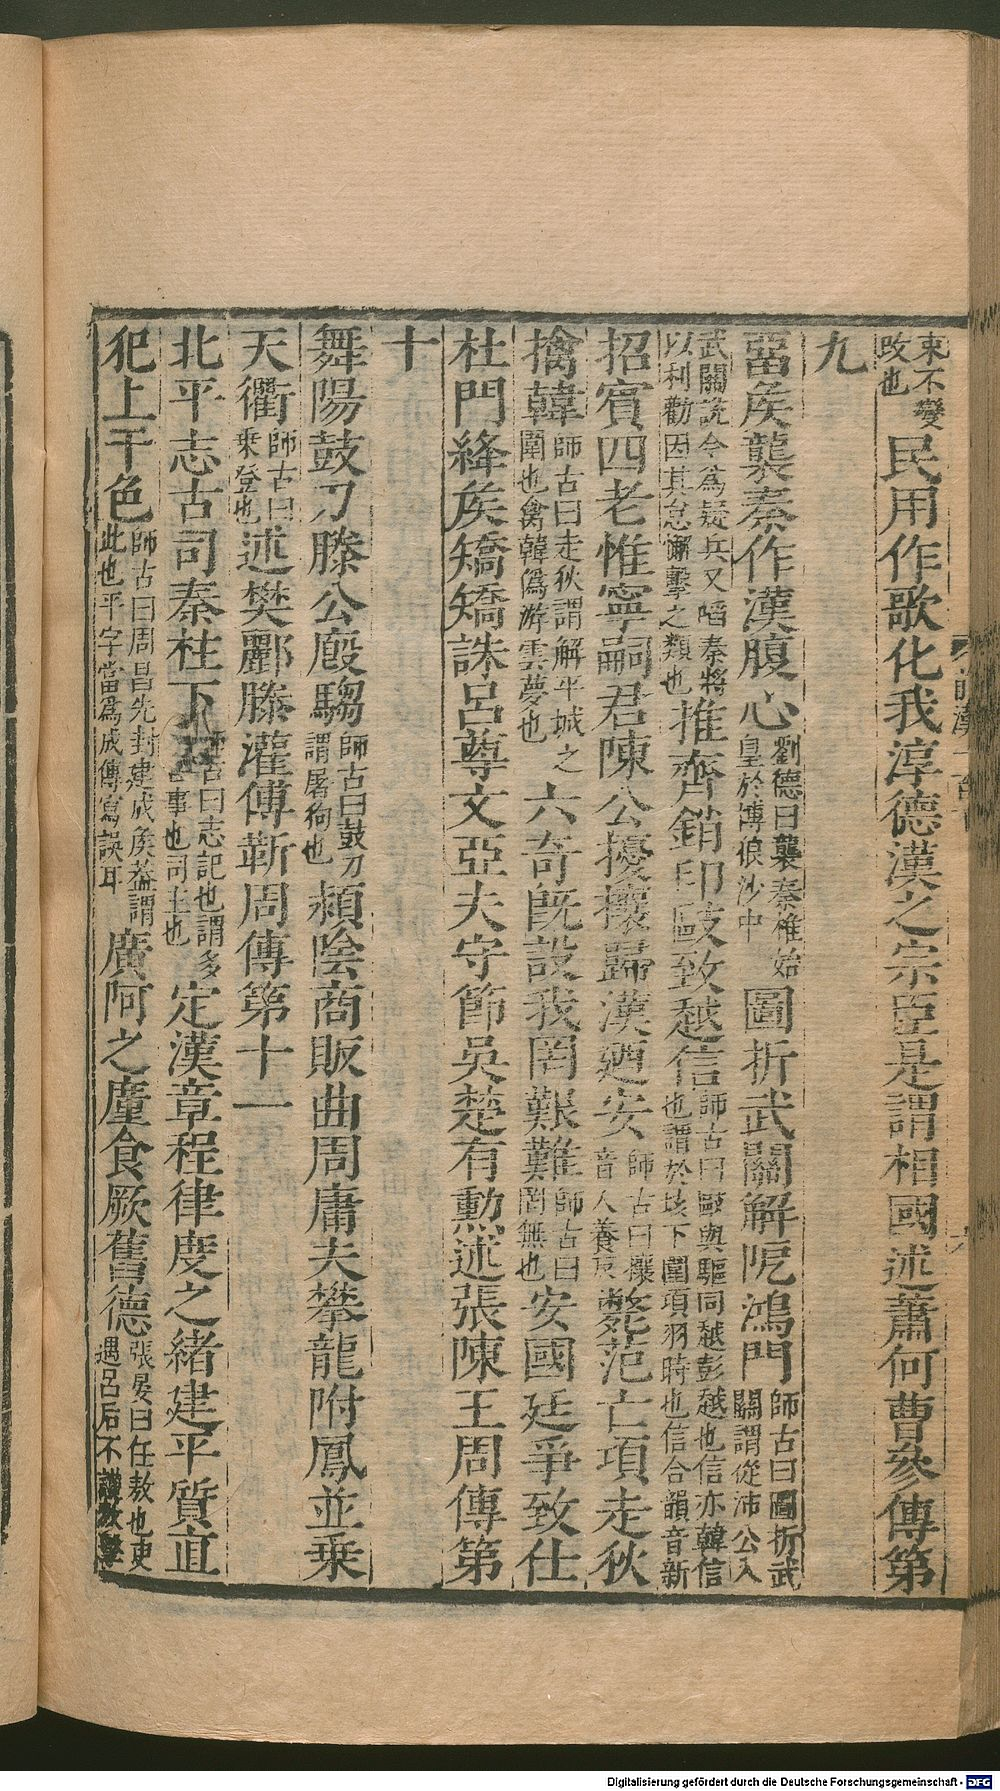 東不變改也民用作歌化我淳德漢之宗臣是謂相國述蕭何曹參傳第
九
畱矦襲秦作漢腹心劉德曰襲秦椎始皇於慱俍沙中圖折武關解阨鴻門師古曰圖折武關謂從沛公入
武關說令爲疑兵又啗秦將以利勸因其怠懈擊之類也推齊銷印敺致越信師古曰敺與驅同越彭越也信亦韓信也謂於垓下圍項羽時也信合韻音新
招賓四老惟寧嗣君陳公擾攘歸漢廼安師古曰攘音人養反斃范亡項走狄
擒韓師古曰走狄謂解平城之圍也禽韓僞游雲夢也六奇旣設我罔艱難師古曰罔無也安國廷爭致仕
杜門絳矦矯矯誅呂尊文亞夫守節吳楚有勲述張陳王周傳第
十
舞陽鼓刀滕公廏騶師古曰鼓刀謂屠狗也潁隂商販曲周庸夫攀龍附鳳並乗
天衢師古曰乗登也述樊酈滕灌傅靳周傳第十一
北平志古司秦柱下師古曰志記也謂多記古事也司主也定漢章程律度之緒建平質直
犯上干色師古曰周昌先封建成矦葢謂此也平字當爲成傳寫誤耳廣阿之廑食厥舊德張晏曰任敖也吏遇呂后不謹敖擊
前漢一百下
Digitalisierung gefördert durch die Deutsche Forschungsgemeinschaft - DFG